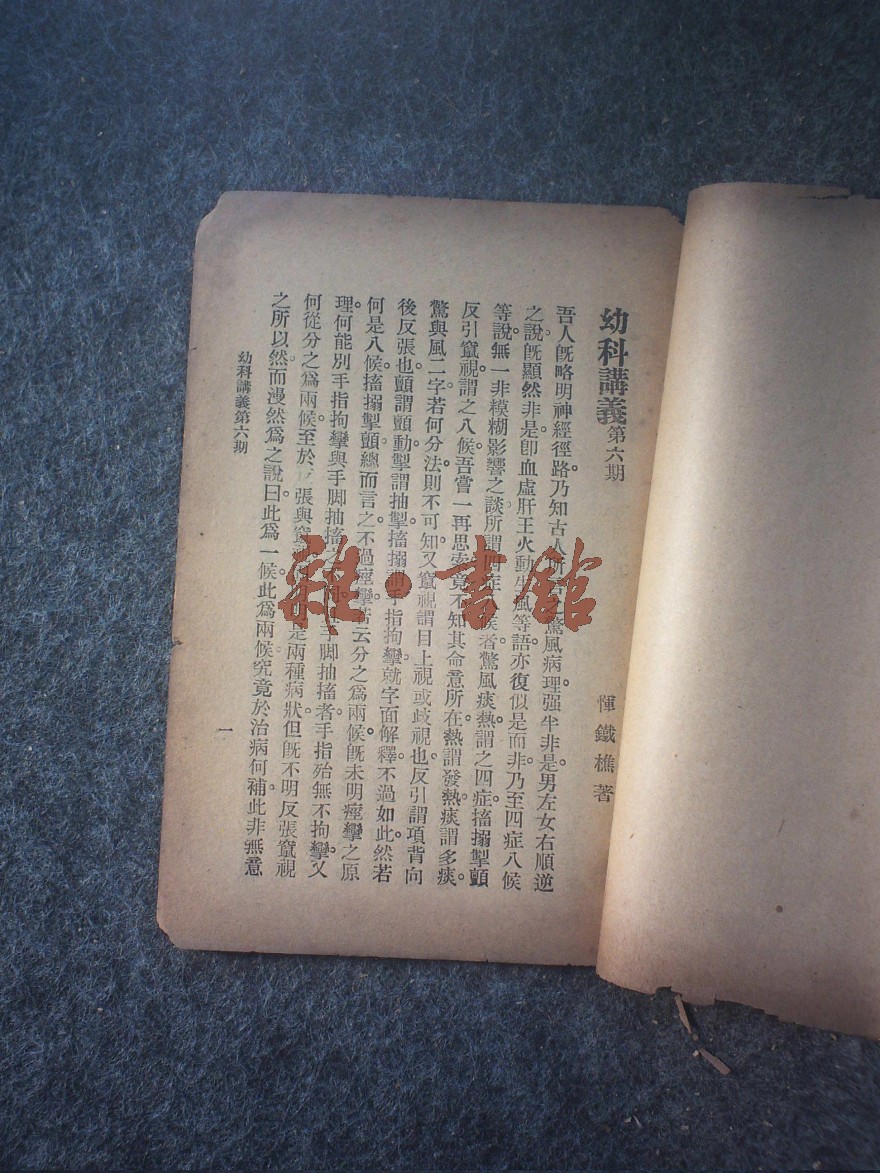 幼科講義第六期
惲鐵樵著
吾人旣略明神經徑路。乃知古人所驚風病理强半非是。男左女右順逆
之說旣顯然非是。卽血虛肝王火動生風等語。亦復似是而非。乃至四症八候
等說。無一非模糊影響之談。所謂四症八候者。驚風痰熱謂之四症。搐搦掣顫
反引竄視謂之八候。吾嘗一再思索。竟不知其命意所在。熱謂發熱。痰謂多痰。
驚與風二字若何分法。則不可知。又竄視謂目上視或歧視也。反引謂項背向
後反張也。顫謂顫動。掣謂抽掣。搐搦謂手指拘攣。就字面解釋。不過如此。然若
何是八候。搐搦掣顫總而言之。不過痙攣。若云分之爲兩候。旣未明痙攣之原
理。何能別手指拘攣與手脚抽搐之手脚抽搐者。手指殆無不拘攣。又
何從分之爲兩候。至於張與竄是兩種病狀。但旣不明反張竄視
之所以然。而漫然爲之說曰。此爲一候。此爲兩候。究竟於治病何補。此非無意
幼科講義第六期
一
雜·書館